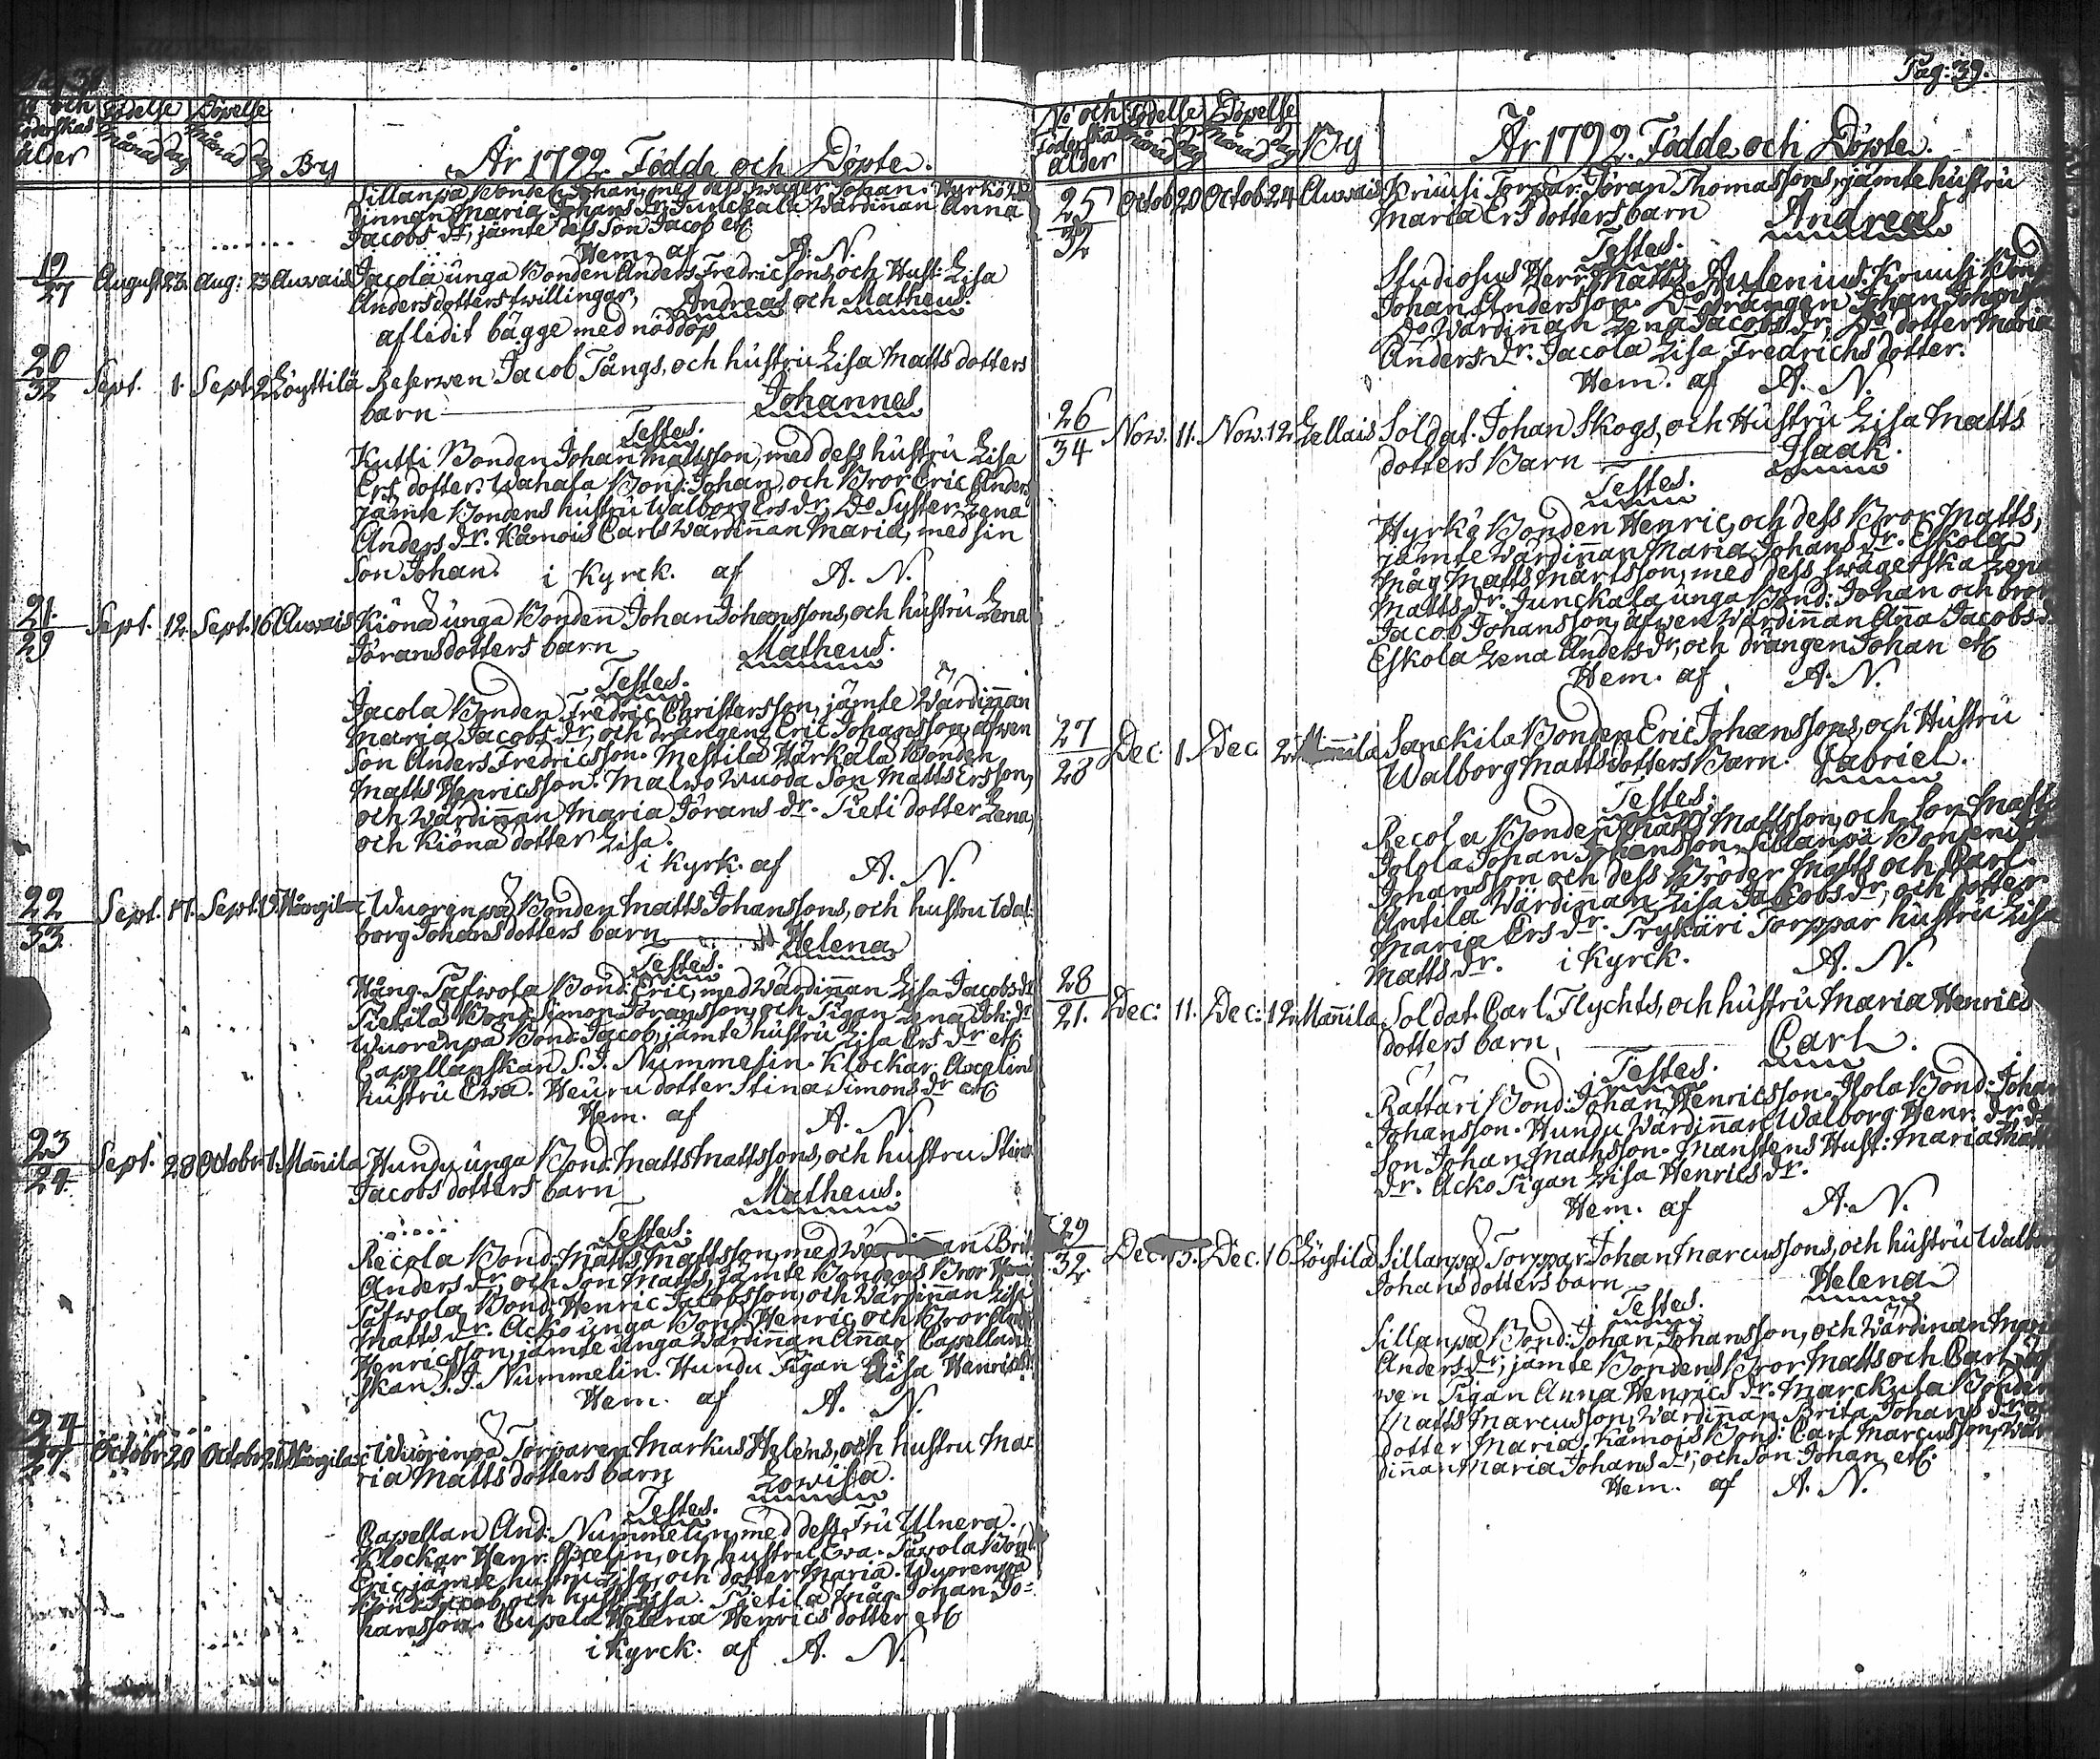 Pag: 38
No och
Föderskas
ålder
Födelse
Månad
Dag
Döpelse
Månad
Dag
By
År 1792 Födde och Döpte.
Sillanpä Bonden Johan, med dess Swåger Johan. Hyrkö
dinnan Maria Johans Dr. Junckala Wärdiñan Anna
Jacobs Dr, jämte dess Son Jacob etc.
Hem. af A. N.
19
27 August 23. Aug: 23 Auwais Jacola unga Bonden Anders Fredricsons, och Hust: Lisa
Andersdotters twillingar, Andreas och Matheus.
aflidit bägge med nöddop
20
32 Sept. 1. Sept 2 Löyttilä Reserven Jacob Tångs, och hustru Lisa Matts dotters
barn Johannes
Testes.
Kutti Bonden Johan Mattsson, med dess hustru Lisa
Ers dotter. Wahala Bond: Johan, och Bror Eric Anders
jämte Bondens hustru Walborg Ers dr. Do Syster Lena
Anders dr. Kåmois Carls Wärdiñan Maria, med sin
Son Johan. i Kyrck. af A. N.
21.
29 Sept. 12. Sept. 16 Auwais Kiönä unga Bonden Johan Johanssons, och hustru Lena
Jöransdotters barn Matheus.
Testes.
Jacola Bonden Fredric Christersson, jämte Wärdiñan
Maria Jacobs dr, och drängen Eric Johansson, äfwen
Son Anders Fredricsson. Mestila Härkälä Bonden
Matts Henricsson. Malwo Wuoda Son Matts Ersson,
och Wärdiñan Maria Jörans dr. Pieti dotter Lena,
och Kiönä dotter Lisa.
i Kyrk. af A. N.
22
33. Sept. 17. Sept. Wuorenpä Bonden Matts Johanssons, och hustru Wal:
borg Johansdotters barn Helena
Testes.
Häng. Tafwola Bond: Eric, med Wärdiñan Lisa Jacobsdr
Pietilä Bond: Simon Göransson, och Pigan Lena Joh: dr
Wuorenpä Bond: Jacob, jämte hustru Lisa Ers dr etc.
Capellanskan S. J. Nummelin. Klockar Axelins
hustru Ewa. Heuru dotter Stina Simons dr etc
Hem. af A. N.
23
24. Sept. 28 Octobr 1. Mañila Hundu unga Bond: Matts Mattssons, och hustru Stina
Jacobs dotters barn Matheus.
Testes.
Recola Bond: Matts Mattsson, med Brit
Anders dr, och Son Matts, jämte Bondens Bror
Tafwola Bond: Henric Jacobsson, och Wärdiñan Lisa
Matts dr. Acko unga Bond: Henric, och Bror
Henricsson, jämte unga Wärdiñan Aña. Capellan:
skan S. J. Nummelin. Hundu Pigan Lisa Henrics
Hem. af A. N.
24
Octobr 20 Octobr 21 Wuorenpä Torparen Markus Helens, och hustru Ma:
ria Matts dotters barn Lowisa.
Testes.
Capellan And: Nummelin, med dess Fru Ulnera.
Klockar Henr. Axelin, och hustru Ewa. Tawola Bond
Eric, jämte hustru Lisa, och dotter Maria. Wuorenpä
Bond: Jacob, och hust: Lisa. Pietilä Måg Johan Jo:
hansson. Cupela Helena Henrics dotter etc
i Kyrck. af A. N.
Pag: 39.
No och
Föderskas
ålder
Födelse
Månad
Dag
Döpelse
Månad
Dag
By
År 1792. Födde och Döpte.
25
32 Octob 20 Octob 24 Auwais Kruusi Torpar. Jöran Thomassons, jämte hustru
Maria Ers dotters barn Andreas
Testes.
Studiosus Herr Matts Aulenius. Kruusi Bond
Johan Andersson. Do drängen Johan Johans
Do Wärdiñan Lena Jacobs dr, Do dotter Maria
Anders dr. Jacola Lisa Fredrichs dotter.
Hem. af A. N.
26
34 Nov. 11. Nov. 12 Lellais Soldat. Johan Skogs, och Hustru Lisa Matts
dotters Barn Isaak.
Testes.
Hyrkö Bonden Henric, och dess Bror Matts,
jämte Wärdiñan Maria Johans dr. Eskola
Måg Matts Märtsson, med dess Swägerska Lena
Matts dr. Junckala unga Bond: Johan och bror
Jacob Johansson, äfwen Wärdiñan Aña Jacobs d.
Eskola Lena Anders dr, och drängen Johan etc
Hem. af A. N.
27
28 Dec. 1. Dec 2 Mañila Sanckila Bonden Eric Johanssons, och Hustru
Walborg Mattsdotters Barn. Gabriel.
Testes.
Recola Bonden Matts Mattsson, och Son Matts
Johan Johansson. Sillanpä Bonden
Johansson och dess Bröder Matts och Carl.
Antila Wärdiñan Lisa Jacobs dr, och dotter
Maria Ers dr. Trykäri Torppar hustru Lisa
Matts dr. i Kyrck. A. N.
28
21. Dec: 11. Dec: 12 Mañila Soldat. Carl Flychts, och hustru Maria Henrics
dotters barn Carl.
Testes.
Rättäri Bond: Johan Henricsson. Isola Bond: Johan
Johansson. Hundu Wärdiñan Walborg Henr. dr
Son Johan Mathsson. Manstens Hust: Maria Matt
dr. Acko Pigan Lisa Henrics dr.
Hem. af A. N.
29
32. Dec. 15. Dec. 16 Löytilä Sillanpä Torppar Johan Marcussons, och hustru Walb
Johans dotters barn Helena
Testes.
Sillanpä Bond: Johan Johansson, och Wärdiñan Mar
Anders dr, jämte Bondens Bror Matts och Carl, äf
wen Pigan Anna Henrics dr. Marckula Bonden
Matts Marcusson, Wärdiñan Brita Johans dr
dotter Maria. Kåmois Bond: Carl Marcusson, Wär
diñan Maria Johans dr, och Son Johan etc.
Hem. af A. N.